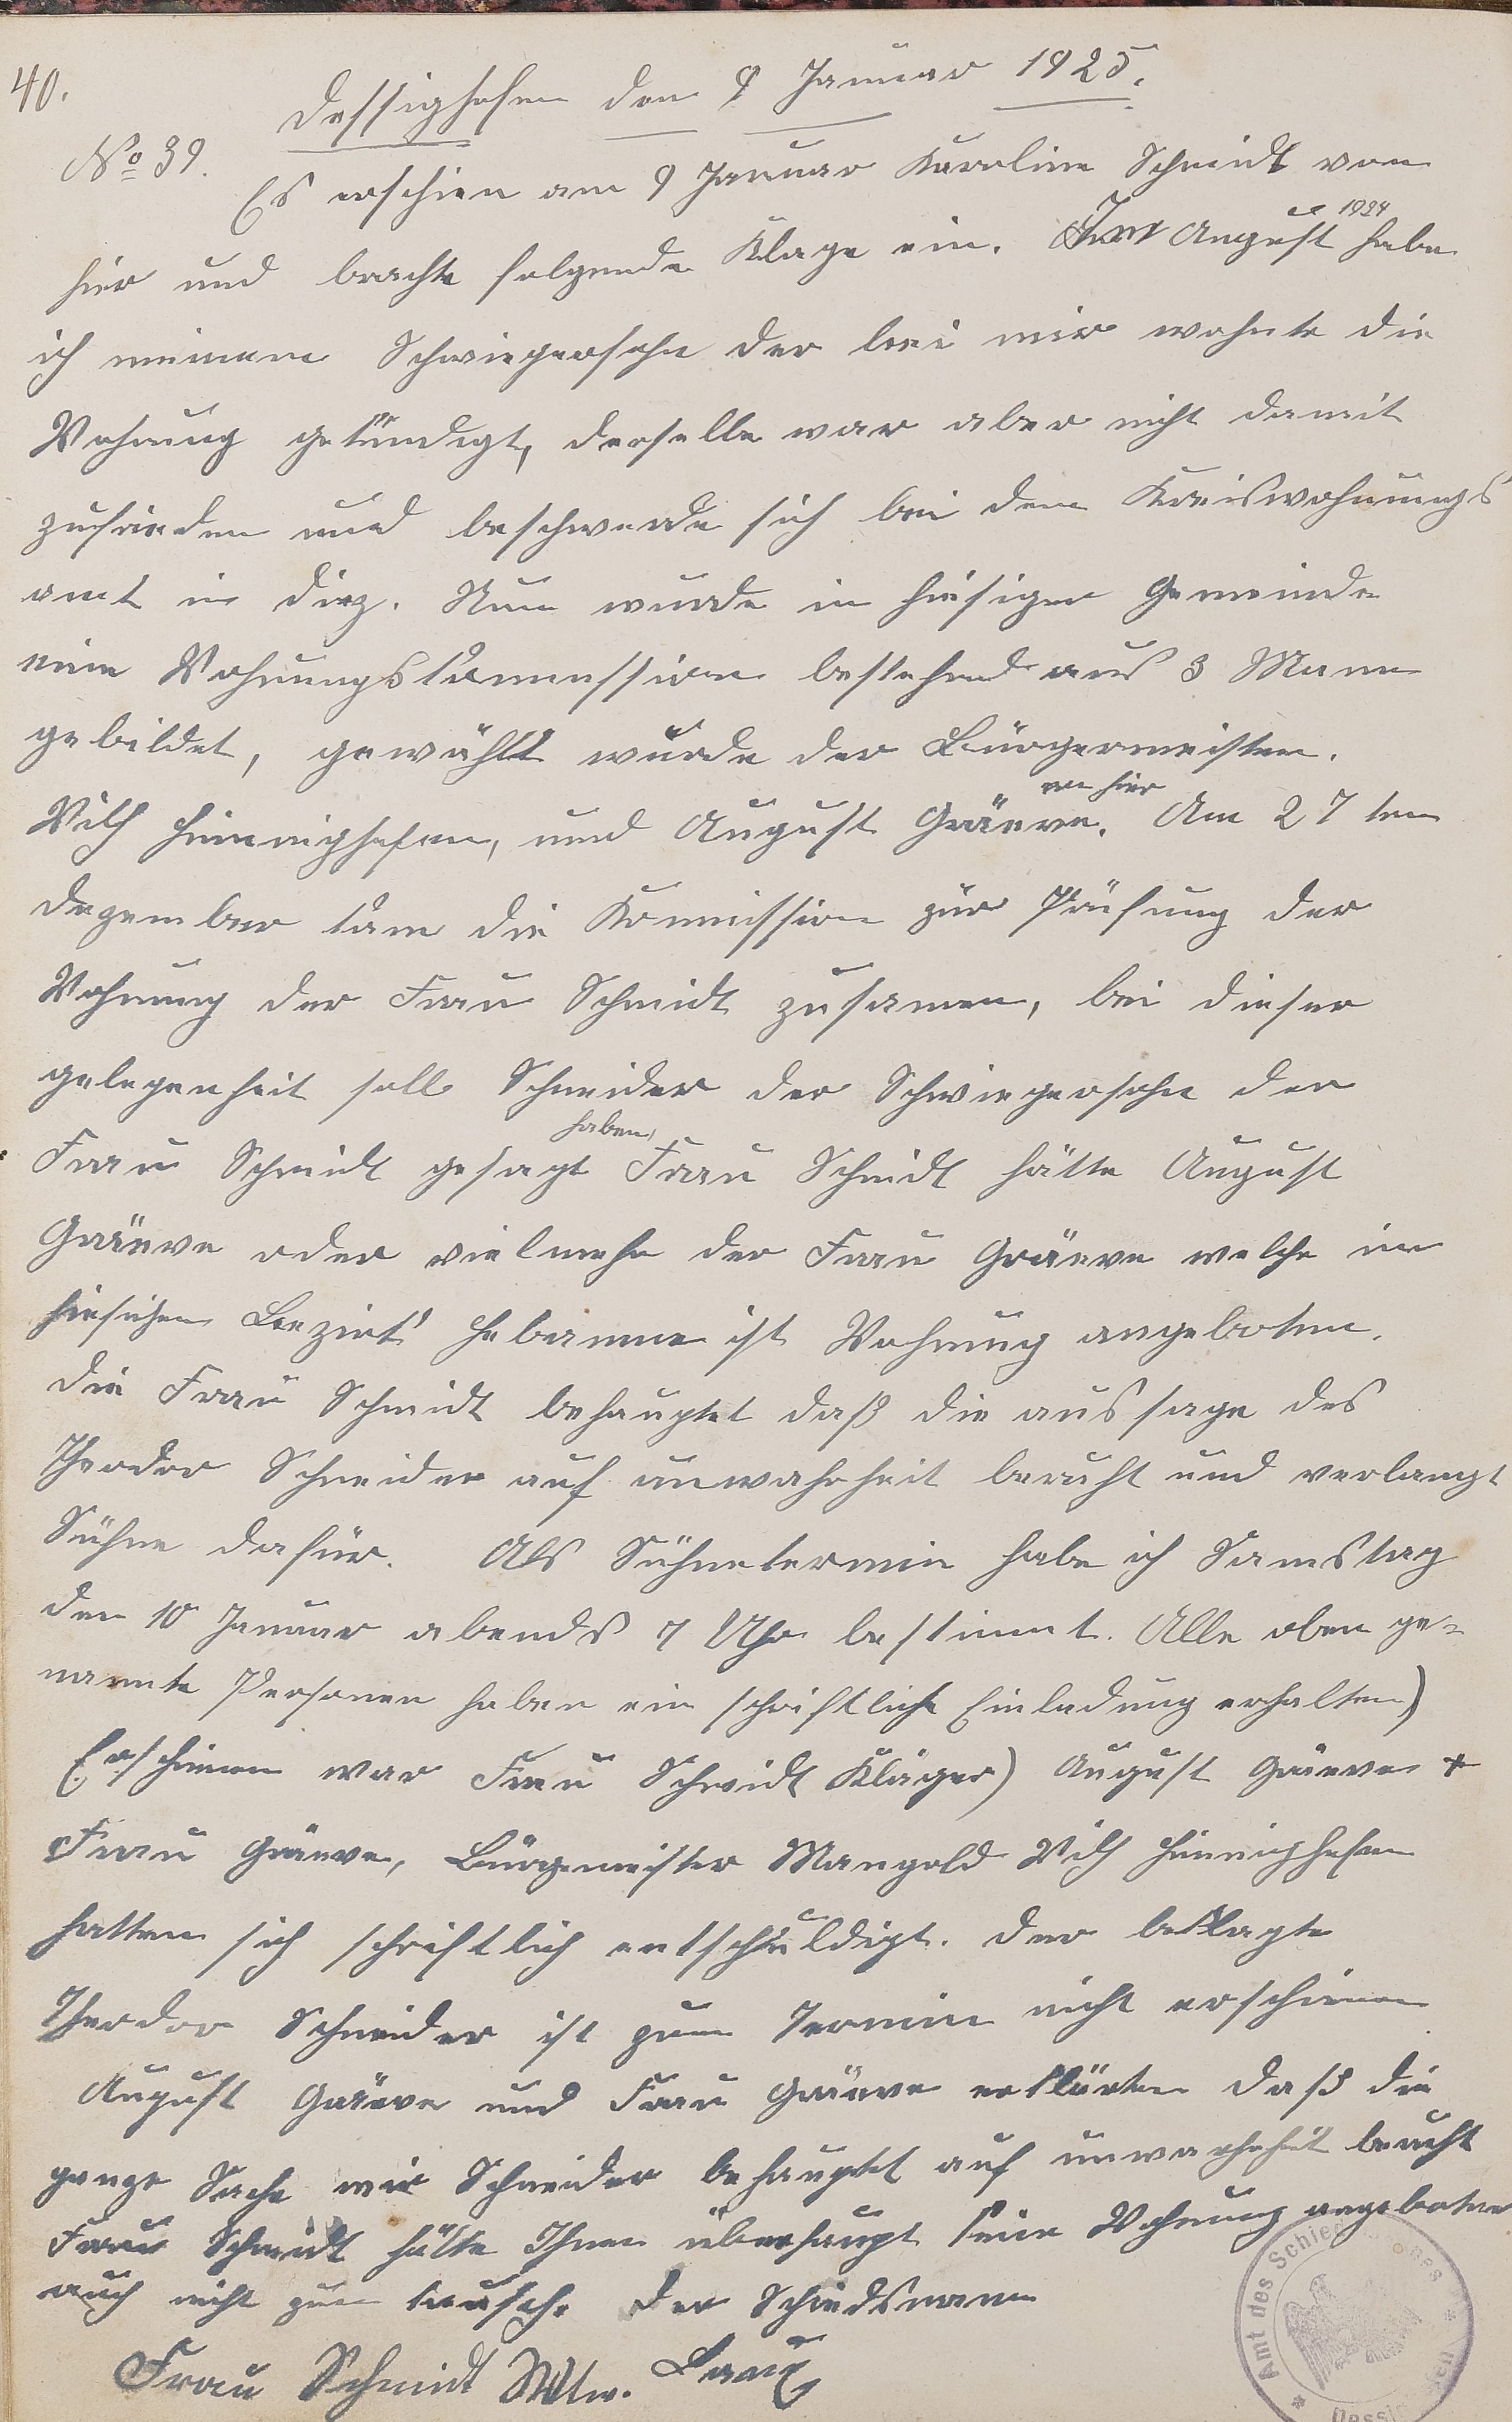 40.
Dessighofen den 9 Januar 1925.
No 39.
Es erschien am 9 Januar Karoline Schmidt von
hier und brachte folgende Klage ein. Im August 1924 habe
ich meinem Schwiegersohn der bei mir wohnte die
Wohnung gekündigt, derselbe war aber nicht damit
zufrieden und beschwerde sich bei dem Kreiswohnungs
amt in Diez. Nun wurde in hiesiger Gemeinde
eine Wohnungskommission bestehend aus 3 Mann
gebildet, gewählt wurde der Bürgermeister.
Wilh Hinnighofen, und August Gräwe von hier. Am 27 ten
Dezember kam die Kommission zur Prüfung der
Wohnung der Frau Schmidt zusamen, bei dieser
gelegenheit soll Schneider der Schwiegersohn der
Frau Schmidt gesagt haben Frau Schmidt hätte August
Gräwe oder vielmehr der Frau Gräwe welche im
hiesigen Bezirk Hebamme ist Wohnung angeboten.
Die Frau Schmidt behauptet daß die aussage des
Theodor Schneider auf unwahrheit beruht und verlangt
Sühne dafür. Als Sühnetermin habe ich Samstag
den 10 Januar abends 7 Uhr bestimmt. Alle oben ge=
nannte Personen haben ein schriftliche Einladung erhalten)
Erschienen war Frau Schmidt Kläger) August Gräwe +
Frau Gräwe, Bürgermeister Mangold Wilh Hinnighofen
hatten sich schriftlich entschuldigt. Der beklagte
Theodor Schneider ist zum Termin nicht erschienen
August Gräwe und Frau Gräwe erklärten daß die
ganze Sache wie Schneider behauptet auf unwahrheit beruht
Frau Schmidt hätte Ihnen überhaupt keine Wohnung angeboten
auch nicht zum tausch. Der Schiedsmann
Frau Schmidt Wtw.
Amt des Schiedsmannes